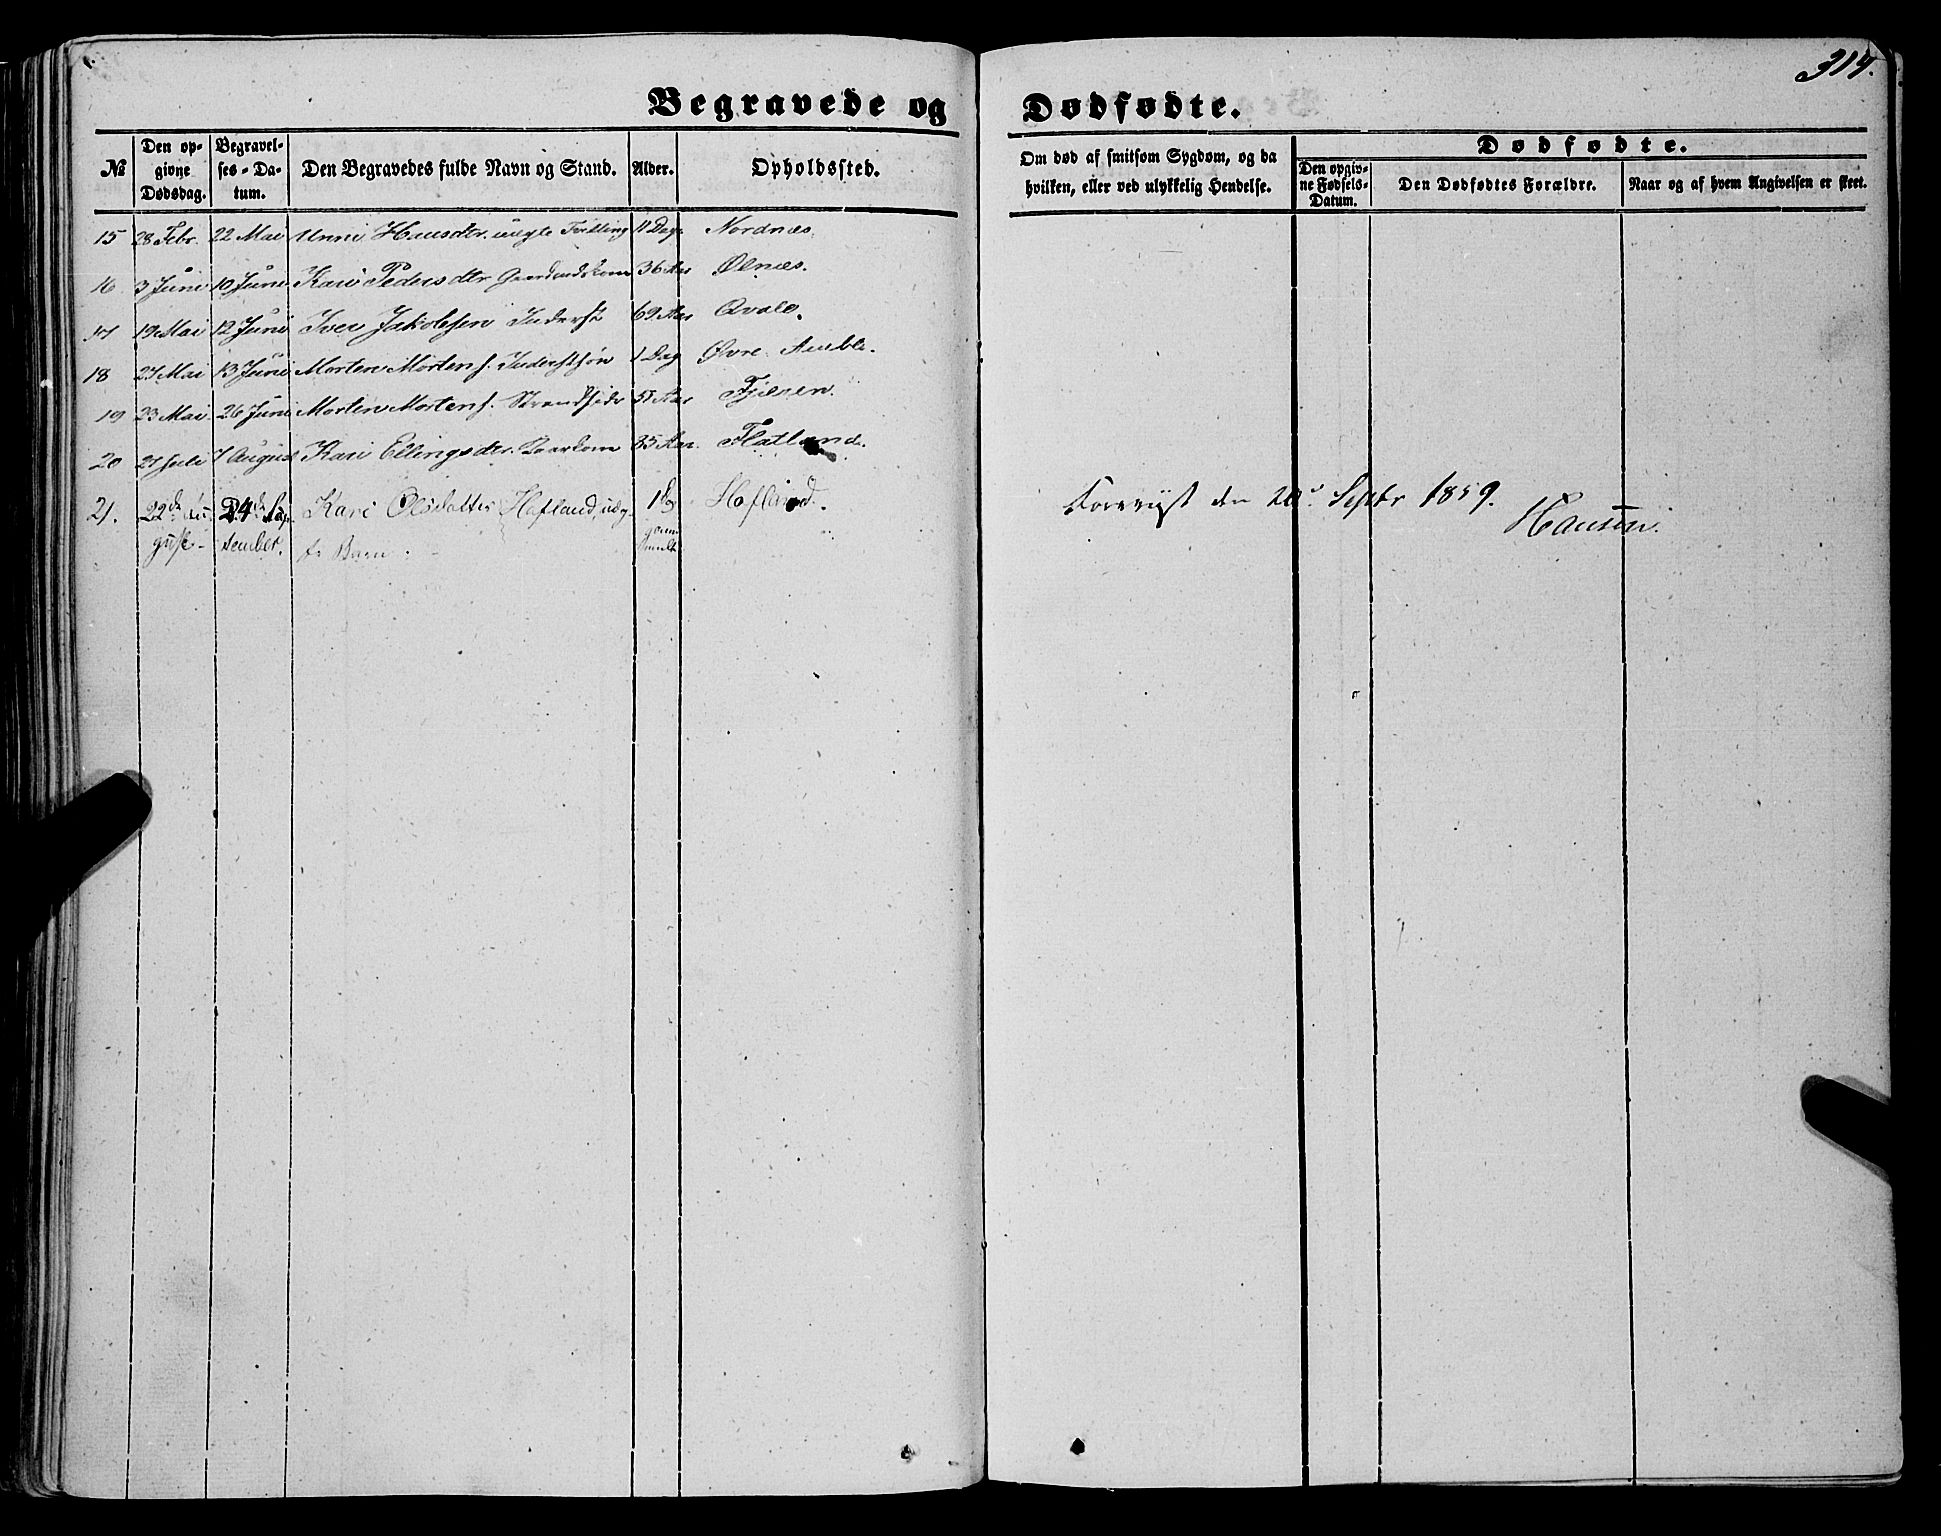 314.
Begravede og Dødfødte.
№
Den opgivne Dødsdag.
Begravelses-Datum.
Den Begravedes fulde Navn og Stand.
Alder.
Opholdssted.
Om død af smitsom Sygdom, og da hvilken, eller ved ulykkelig Hendelse.
Dødfødte.
Den opgivne Fødsels-Datum.
Den Dødfødtes Forældre.
Naar og af hvem Angivelsen er skeet.
15 28 Febr. 22 Mai Unni Hansdtr. uægte Tvilling 11 Dage Nordnæs.
16 3 Juni 10 Juni Kari Pedersdtr 36 Aar Ølnæs.
17 19 Mai 12 Juni Iver Jakobsen Inderst 69 Aar Qvale.
18 27 Mai 13 Juni Morten Mortens. Inderstsøn 1 Dag Øvre Amble.
19 23 Mai 26 Juni Morten Mortens. Strandsider 51 Aar
20 27 Juli 7 August Kari Ellingsdtr. 35 Aar. Flatland.
21. 22de August 4de September. Kari Olsdatter Hofland, uægte Barn. 1 Hofland.
den 20 Septbr 1859.
Hansen.